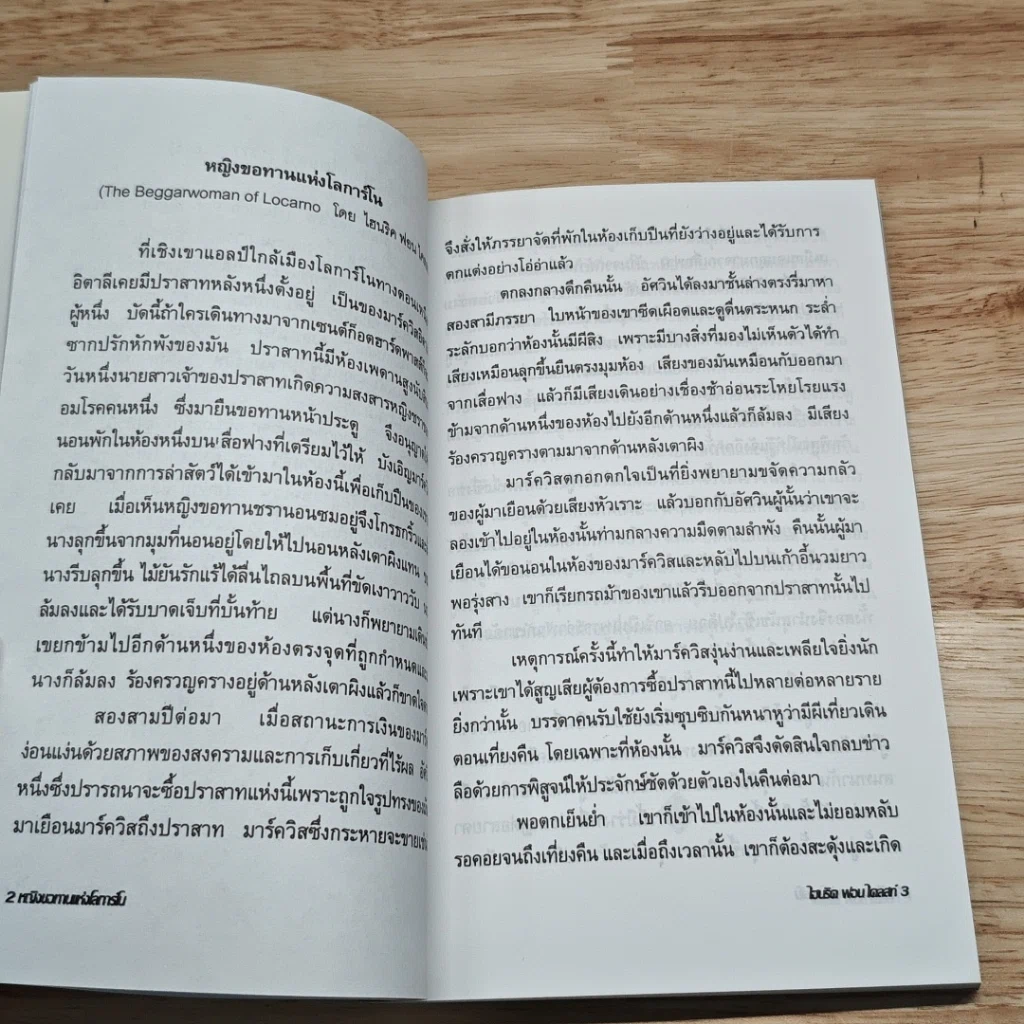 หญิงขอทานแห่งโลการ์โน
(The Beggarwoman of Locarno โดย ไฮนริค ฟอน
ที่เชิงเขาแอลป์ใกล้เมืองโลการ์โนทางตอนเหนือ
อิตาลีเคยมีปราสาทหลังหนึ่งตั้งอยู่ เป็นของมาร์ควิส
ผู้หนึ่ง บัดนี้ถ้าใครเดินทางมาจากเซนต์ก็อตฮาร์ด
ซากปรักหักพังของมัน ปราสาทนี้มีห้องเพดานสูง
วันหนึ่งนายสาวเจ้าของปราสาทเกิดความสงสารหญิงชรา
อมโรคคนหนึ่ง ซึ่งมายืนขอทานหน้าประตู จึงอนุญาต
นอนพักในห้องหนึ่งบนเสื่อฟางที่เตรียมไว้ให้ บังเอิญ
กลับมาจากการล่าสัตว์ได้เข้ามาในห้องนี้เพื่อเก็บปืนของ
เคย เมื่อเห็นหญิงขอทานชรานอนซมอยู่จึงโกรธกริ้ว
นางลุกขึ้นจากมุมที่นอนอยู่โดยให้ไปนอนหลังเตาผิงแทน
นางรีบลุกขึ้น ไม้ยันรักแร้ได้ลื่นไถลบนพื้นที่ขัดเงาวาววับ
ล้มลงและได้รับบาดเจ็บที่บั้นท้าย แต่นางก็พยายาม
เขยกข้ามไปอีกด้านหนึ่งของห้องตรงจุดที่ถูกกำหนด
นางก็ล้มลง ร้องครวญครางอยู่ด้านหลังเตาผิงแล้วก็ขาดใจ
สองสามปีต่อมา เมื่อสถานะการเงินของ
ง่อนแง่นด้วยสภาพของสงครามและการเก็บเกี่ยวที่ไร้ผล
หนึ่งซึ่งปรารถนาจะซื้อปราสาทแห่งนี้เพราะถูกใจรูปทรงของ
มาเยือนมาร์ควิสถึงปราสาท มาร์ควิสซึ่งกระหายจะขาย
2 หญิงขอทานแห่งโลการ์โน
จึงสั่งให้ภรรยาจัดที่พักในห้องเก็บปืนที่ยังว่างอยู่และได้รับการ
ตกแต่งอย่างโอ่อ่าแล้ว
ตกลงกลางดึกคืนนั้น อัศวินได้ลงมาชั้นล่างตรงรี่มาหา
สองสามีภรรยา ใบหน้าของเขาซีดเผือดและดูตื่นตระหนก ระล่ำ
ระลักบอกว่าห้องนั้นมีผีสิง เพราะมีบางสิ่งที่มองไม่เห็นตัวได้ทำ
เสียงเหมือนลุกขึ้นยืนตรงมุมห้อง เสียงของมันเหมือนกับออกมา
จากเสื่อฟาง แล้วก็มีเสียงเดินอย่างเชื่องช้าอ่อนระโหยโรยแรง
ข้ามจากด้านหนึ่งของห้องไปยังอีกด้านหนึ่งแล้วก็ล้มลง มีเสียง
ร้องครวญครางตามมาจากด้านหลังเตาผิง
มาร์ควิสตกอกตกใจเป็นที่ยิ่งพยายามขจัดความกลัว
ของผู้มาเยือนด้วยเสียงหัวเราะ แล้วบอกกับอัศวินผู้นั้นว่าเขาจะ
ลองเข้าไปอยู่ในห้องนั้นท่ามกลางความมืดตามลำพัง คืนนั้นผู้มา
เยือนได้ขอนอนในห้องของมาร์ควิสและหลับไปบนเก้าอี้นวมยาว
พอรุ่งสาง เขาก็เรียกรถม้าของเขาแล้วรีบออกจากปราสาทนั้นไป
ทันที
เหตุการณ์ครั้งนี้ทำให้มาร์ควิสงุ่นง่านและเพลียใจยิ่งนัก
เพราะเขาได้สูญเสียผู้ต้องการซื้อปราสาทนี้ไปหลายต่อหลายราย
ยิ่งกว่านั้น บรรดาคนรับใช้ยังเริ่มซุบซิบกันหนาหูว่ามีผีเที่ยวเดิน
ตอนเที่ยงคืน โดยเฉพาะที่ห้องนั้น มาร์ควิสจึงตัดสินใจกลบข่าว
ลือด้วยการพิสูจน์ให้ประจักษ์ชัดด้วยตัวเองในคืนต่อมา
พอตกเย็นย่ำ เขาก็เข้าไปในห้องนั้นและไม่ยอมหลับ
รอคอยจนถึงเที่ยงคืน และเมื่อถึงเวลานั้น เขาก็ต้องสะดุ้งและเกิด
ไฮนริค ฟอน ไคลสท์ 3